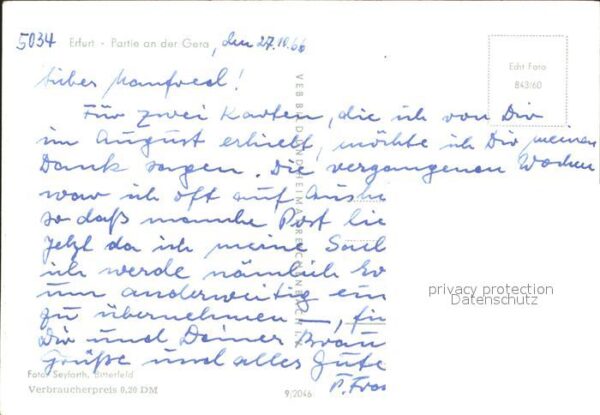 5034 Erfurt - Partie an der Gera, den 27.10.66
Echt Foto
843/60
Lieber Manfred!
Für zwei Karten, die ich von Dir
im August erhielt, möchte ich Dir meinen
Dank sagen. Die vergangenen Wochen
war ich oft auf
so daß manche Post lie
Jetzt da ich meine
ich werde nämlich
um anderweitig ein
zu übernehmen —, für
Dir und Deiner Brau
Grüße und alles Gute
privacy protection
Datenschutz
Foto: Seyfarth, Bitterfeld
Verbraucherpreis 0,20 DM
9/2046